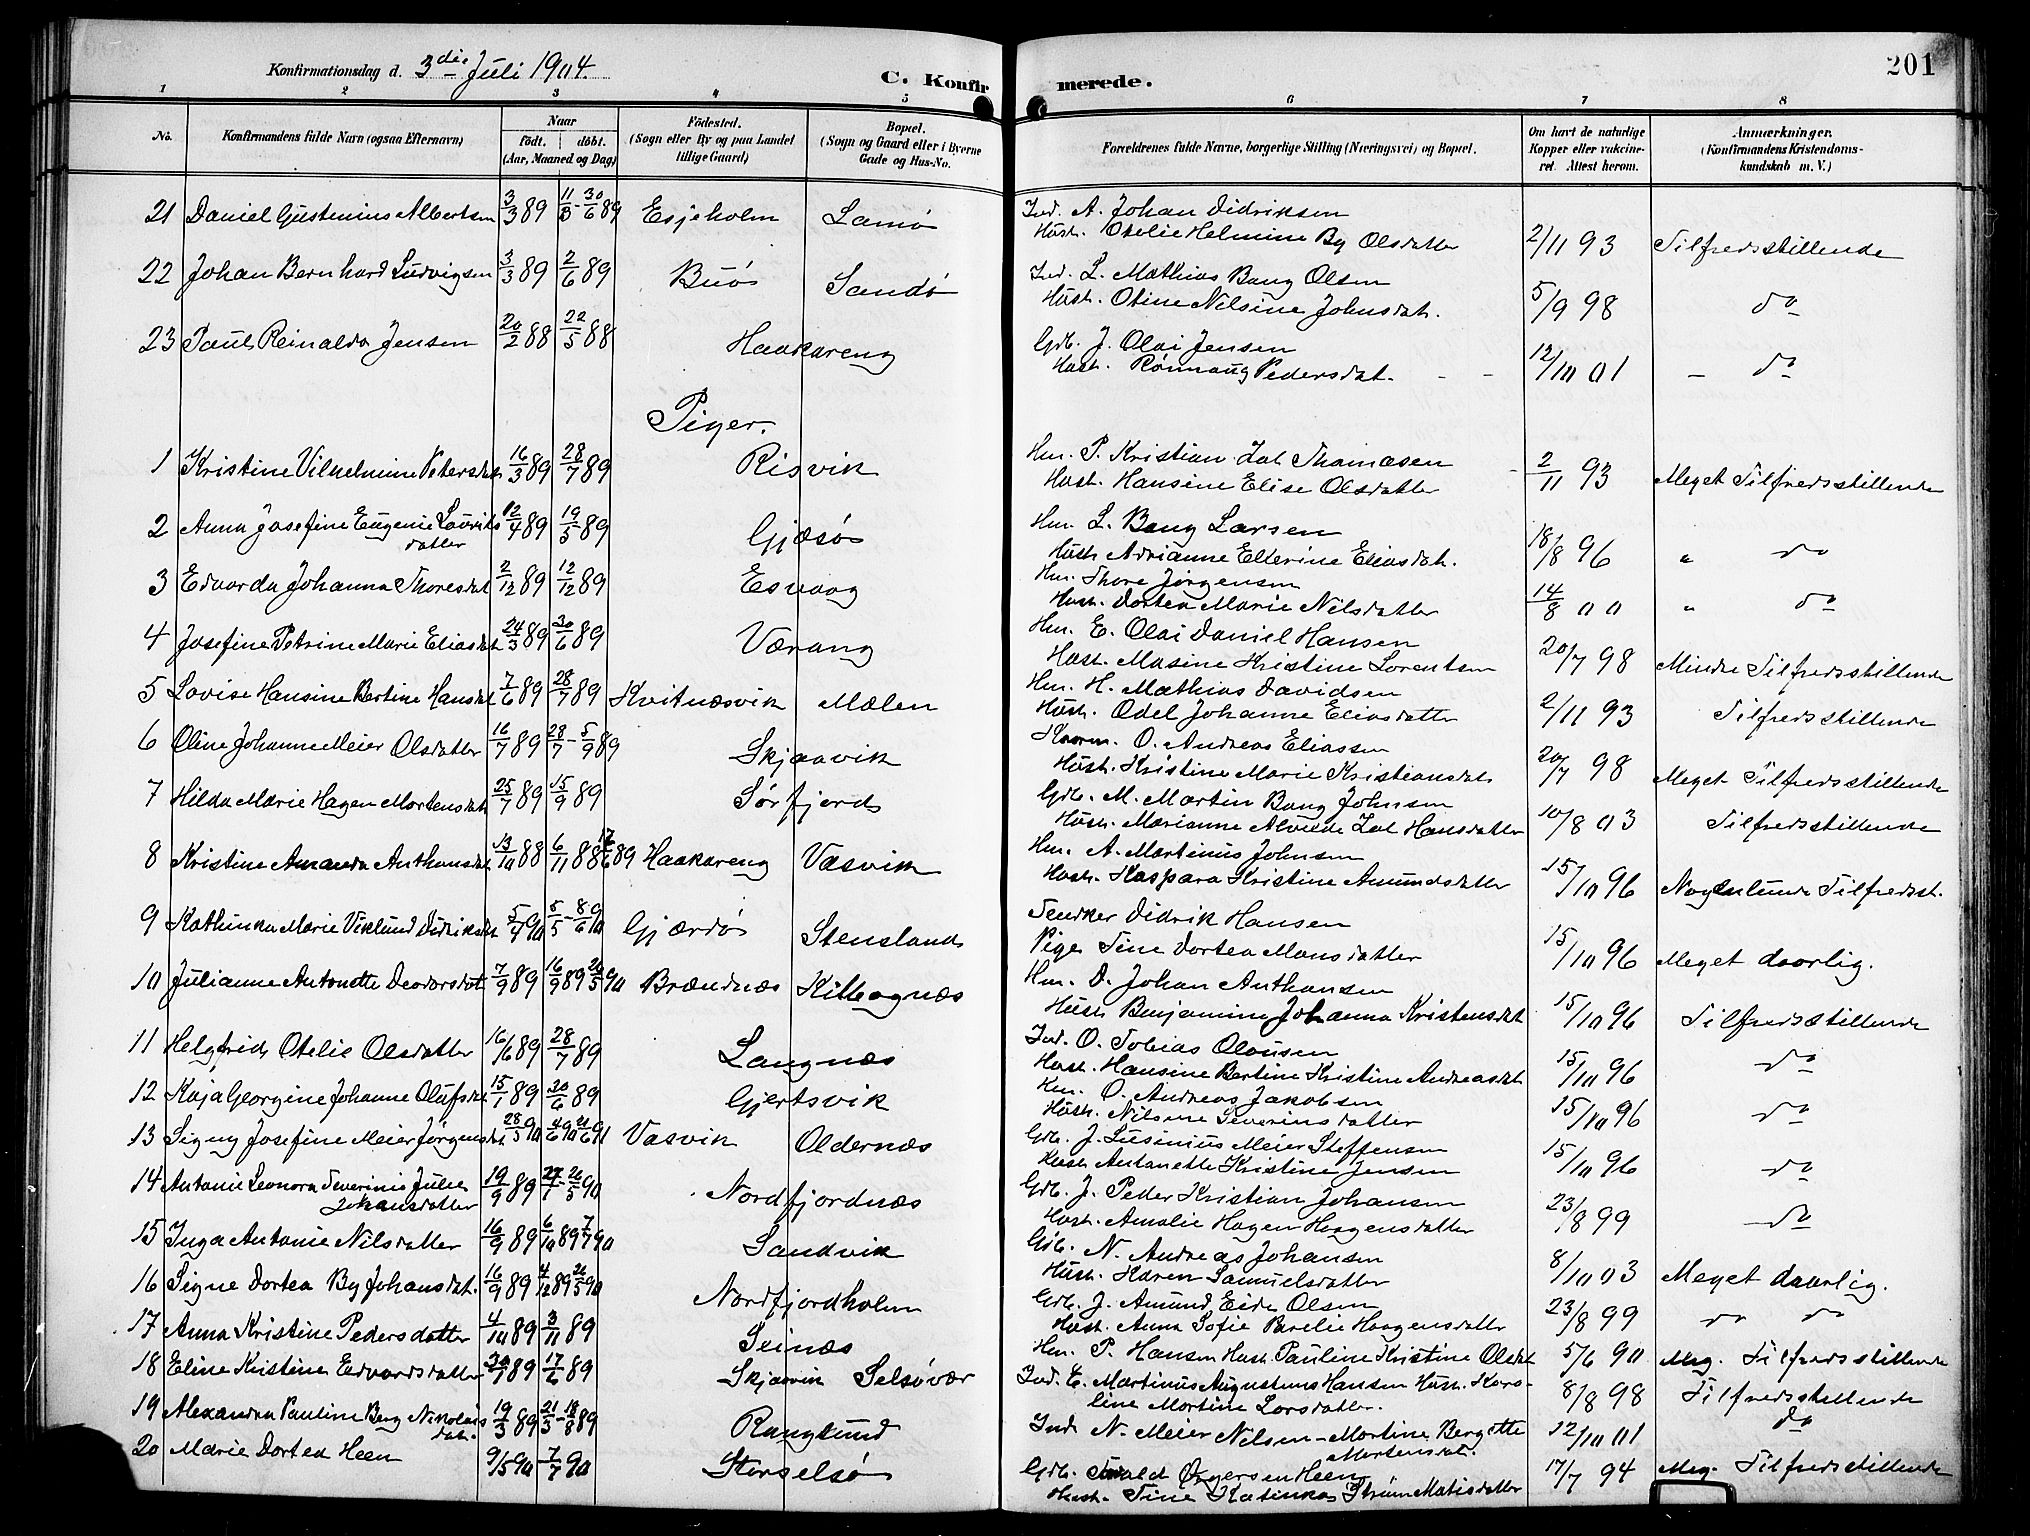 201
Konfirmationsdag d. 3die Juli 1904.
C. Konfirmerede.
1 2 3 4 5 6 7 8
No. Konfirmandens fulde Navn (ogsaa Efternavn) Naar födt. döbt. (Aar, Maaned og Dag) Födested. (Sogn eller By og paa Landet tillige Gaard) Bopæl. (Sogn og Gaard eller i Byerne Gade og Hus-No. Forældrenes fulde Navne, borgerlige Stilling (Næringsvei) og Bopæl. Om havt de naturlige Kopper eller vakcineret. Attest herom. Anmærkninger. (Konfirmandens Kristendomskundskab m. V.)
21 Daniel Gusteninus Albertsen 3/3 89 11/3 - 30/6 89 Esjeholm Lamø Ind. A. Johan Didriksen
Hust. Otelie Helmine By Olsdatter 2/11 93 Tilfredsstillende
22 Johan Bernhard Ludvigsen 3/3 89 2/6 89 Buø Sandø Ind. L. Mathias Bang Olsen
Hust. Otine Nilsine Johnsdat. 5/9 98 do
23 Paul Reinaldo Jensen 20/2 88 22/5 88 Haakareng Gdb. J. Olai Jensen
Hust. Rønnaug Pedersdat. - - 12/10 01 - do
Piger.
1 Kristine Vilhelmine Petersdat 16/3 89 28/7 89 Risvik Hm. P. Kristian Zal Thomasen
Hust. Hansine Elise Olsdatter 2/11 93 Meget Tilfredsstillende
2 Anna Josefine Eugenie Lauritsdatter 12/4 89 19/5 89 Gjæsø Hm. L. Bang Larsen
Hust. Adrianne Ellerine Eliasdat. 18/8 96 " do
3 Edvarda Johanna Thoresdat 2/12 89 12/12 89 Esvaag Hm. Thore Jørgensen
Hust. Dortea Marie Nilsdatter 14/8 00 " do
4 Josefine Petrine Marie Eliasdat 24/3 89 30/6 89 Værang Hm. E. Olai Daniel Hansen
Hust. Masine Kristine Lorentsen 20/7 98 Mindre Tilfredsstillende
5 Lovise Hansine Bertine Hansdat 7/6 89 28/7 89 Kvitnæsvik Mælen Hm. H. Mathias Davidsen
Hust. Odel Johanne Eliasdatter 2/11 93 Tilfredsstillende
6 Oline Johanne Meier Olsdatter 16/7 89 28/7 - 5/9 89 Skjaavik O. Andreas Eliassen
Hust. Kristine Marie Kristiansdat 20/7 98 Meget Tilfredsstillende
7 Hilda Marie Hagen Mortensdat 25/7 89 15/9 89 Sørfjord Gdb. M. Martin Bang Johnsen
Hust. Marianne Alvilde Zal Hansdatter 10/8 03 Tilfredsstillende
8 Kristine Amanda Anthonsdat 13/10 88 6/11 88 17/6 89 Haakareng Vasvik Hm. A. Martinus Johnsen
Hust. Kaspara Kristine Amundsdatter 15/10 96 Nogenlunde Tilfredsst.
9 Kathinka Marie Viklund Didriksdat 5/4 90 5/5 - 8/6 90 Gjærdø Stensland Didrik Hansen
Pige Tine Dortea Monsdatter 15/10 96 Meget daarlig.
10 Julianne Antonette Deodorsdat 7/9 89 16/9 89 26/5 90 Brændnæs Kilbognæs Hm. D. Johan Anthonsen
Hust. Benjamine Johanna Kristensdat 15/10 96 Tilfredsstillende
11 Helgfrid Otelie Olsdatter 16/6 89 28/7 89 Langnæs Ind. O. Tobias Olausen
Hust. Hansine Bertine Kristine Andreasdat 15/10 96 do
12 Kaja Georgine Johanne Olufsdat 15/1 89 30/6 89 Gjertsvik Hm. O. Andreas Jakobsen
Hust. Nilsine Severinsdatter 15/10 96 do
13 Signy Josefine Meier Jørgensdat 28/5 90 4/6 90 21/6 91 Vasvik Oldernæs Gdb. J. Lusinius Meier Steffensen
Hust. Antonette Kristine Jensen 15/10 96 do
14 Antonie Leonora Severinis Julie Johansdatter 19/9 89 27/7 - 26/5 90 Nordfjordnæs Gdb. J. Peder Kristian Johansen
Hust. Amalie Hagen Haagensdatter 23/8 99 do
15 Inga Antonie Nilsdatter 16/9 89 6/10 89 7/7 90 Sandvik Gdb. N. Andreas Johansen
Hust. Karen Samuelsdatter 8/10 03 Meget daarlig.
16 Signe Dortea By Johansdat. 16/9 89 4/12 89 26/5 90 Nordfjordholm Gdb. J. Amund Eide Olsen
Hust. Anna Sofie Parelie Haagensdatter 23/8 99 do do
17 Anna Kristine Pedersdatter 4/10 89 3/11 89 Seinæs Hm. P. Hansen Hust. Pauline Kristine Olsdat 5/6 90 Meg. Tilfredsstillende
18 Eline Kristine Edvardsdatter 30/1 89 17/6 89 Skjaavik Selsøvær Ind. E. Martinus Augustinus Hansen Hust. Karoline Mortine Larsdatter. 8/8 98 Tilfredsstillende
19 Alexandra Pauline Berg Nikolaisdat. 19/3 89 21/5 - 18/8 89 Ranglund Ind N. Meier Nilsen - Martine Bergette Mortensdat. 12/10 01 do
20 Marie Dortea Heen 9/5 90 - 7/7 90 Storselsø Gdb. Heen
Hust. Tine Katinka Strøm Matisdatter 17/7 94 Meg. Tilfredsstillende